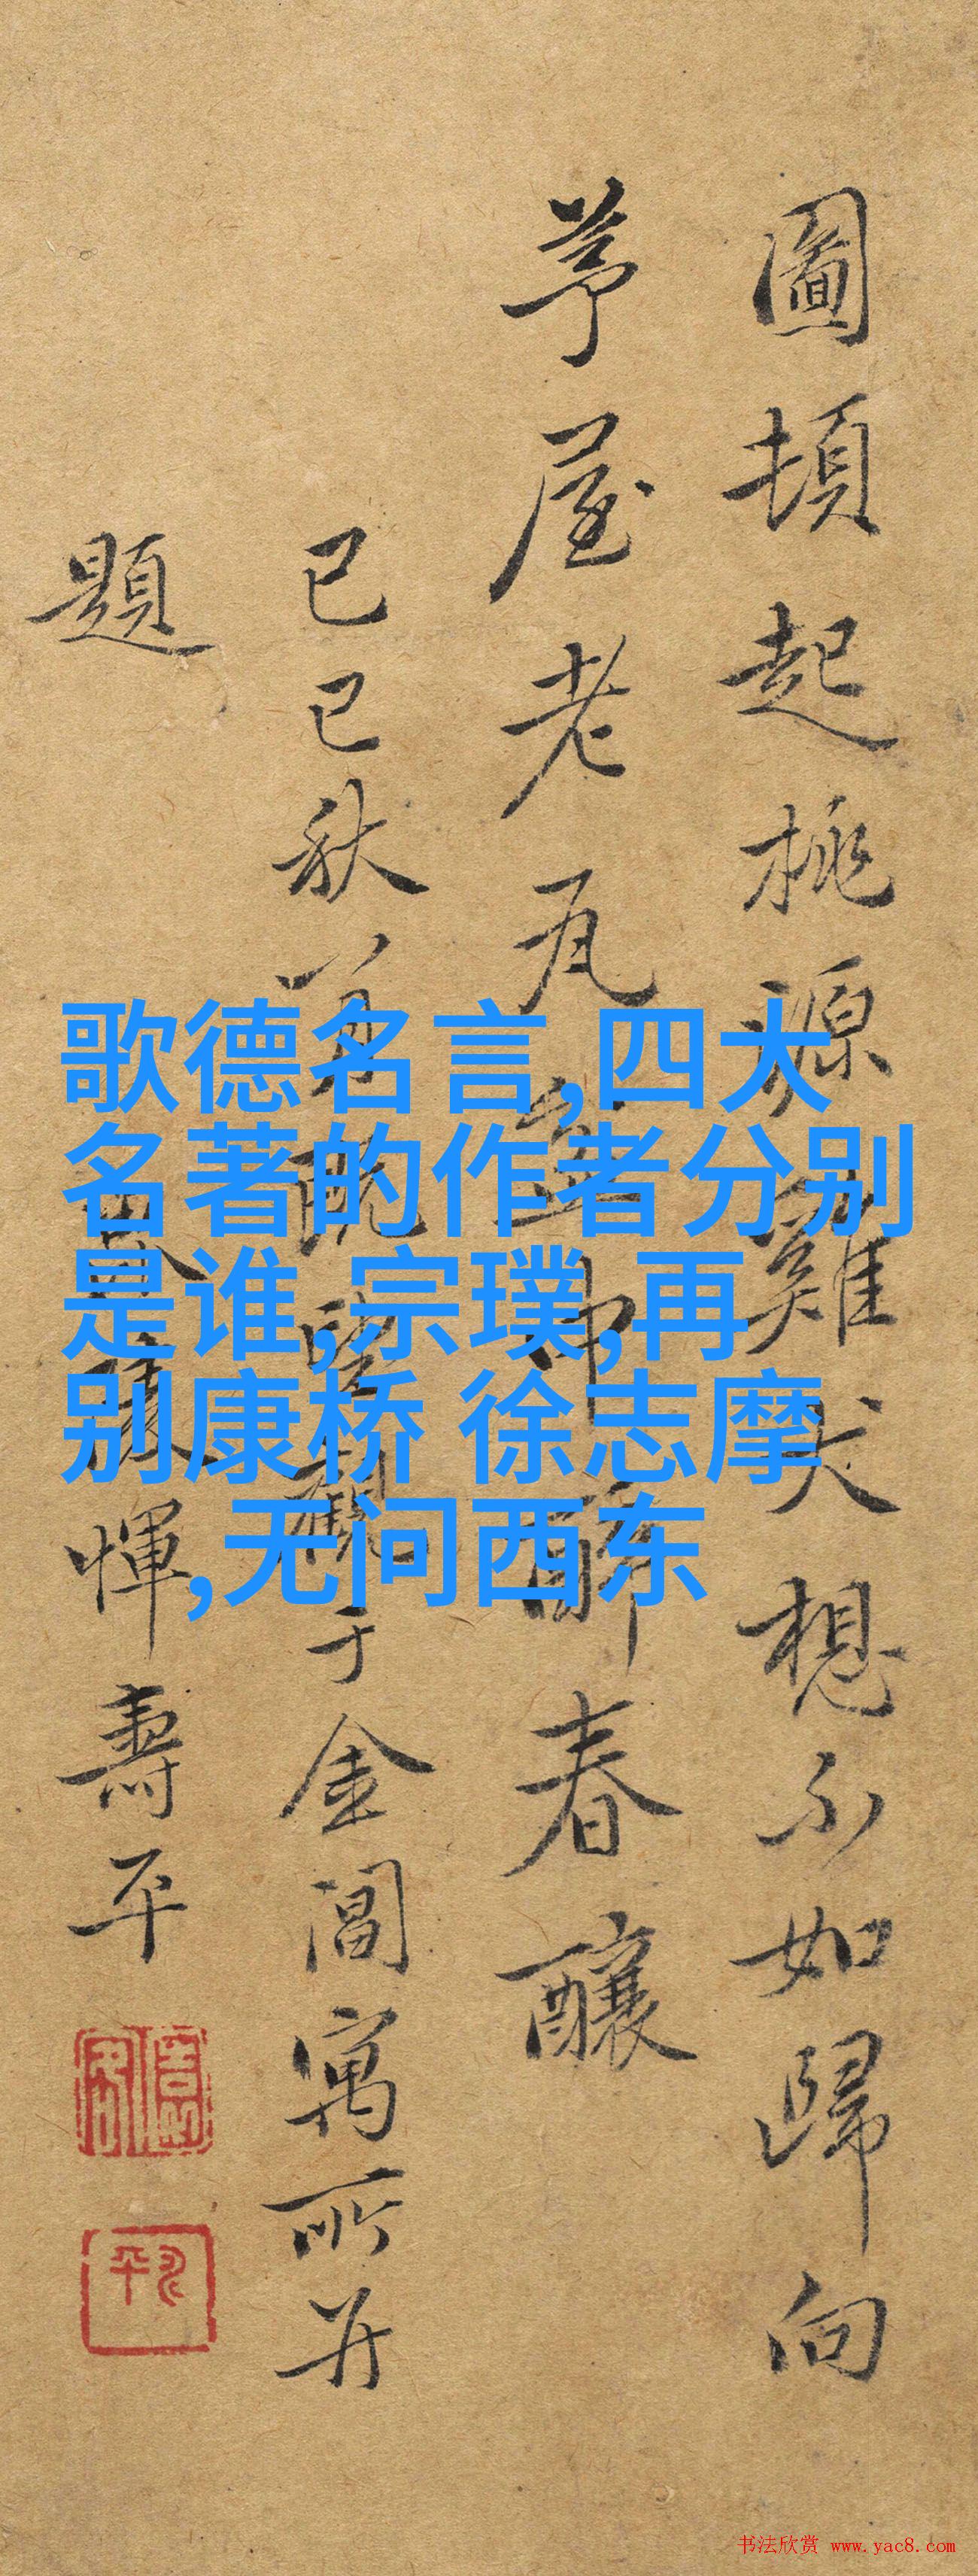 圖頓起桃源雞犬想不如歸向
茅屋老瓦盆中酹春釀
己巳秋八月既望觀于金閶寓所并
題
惲壽平
歌德名言,四大
名著的作者分别
是谁,宗璞,再
别康桥 徐志摩
,无问西东
书法欣赏 www.yac8.com